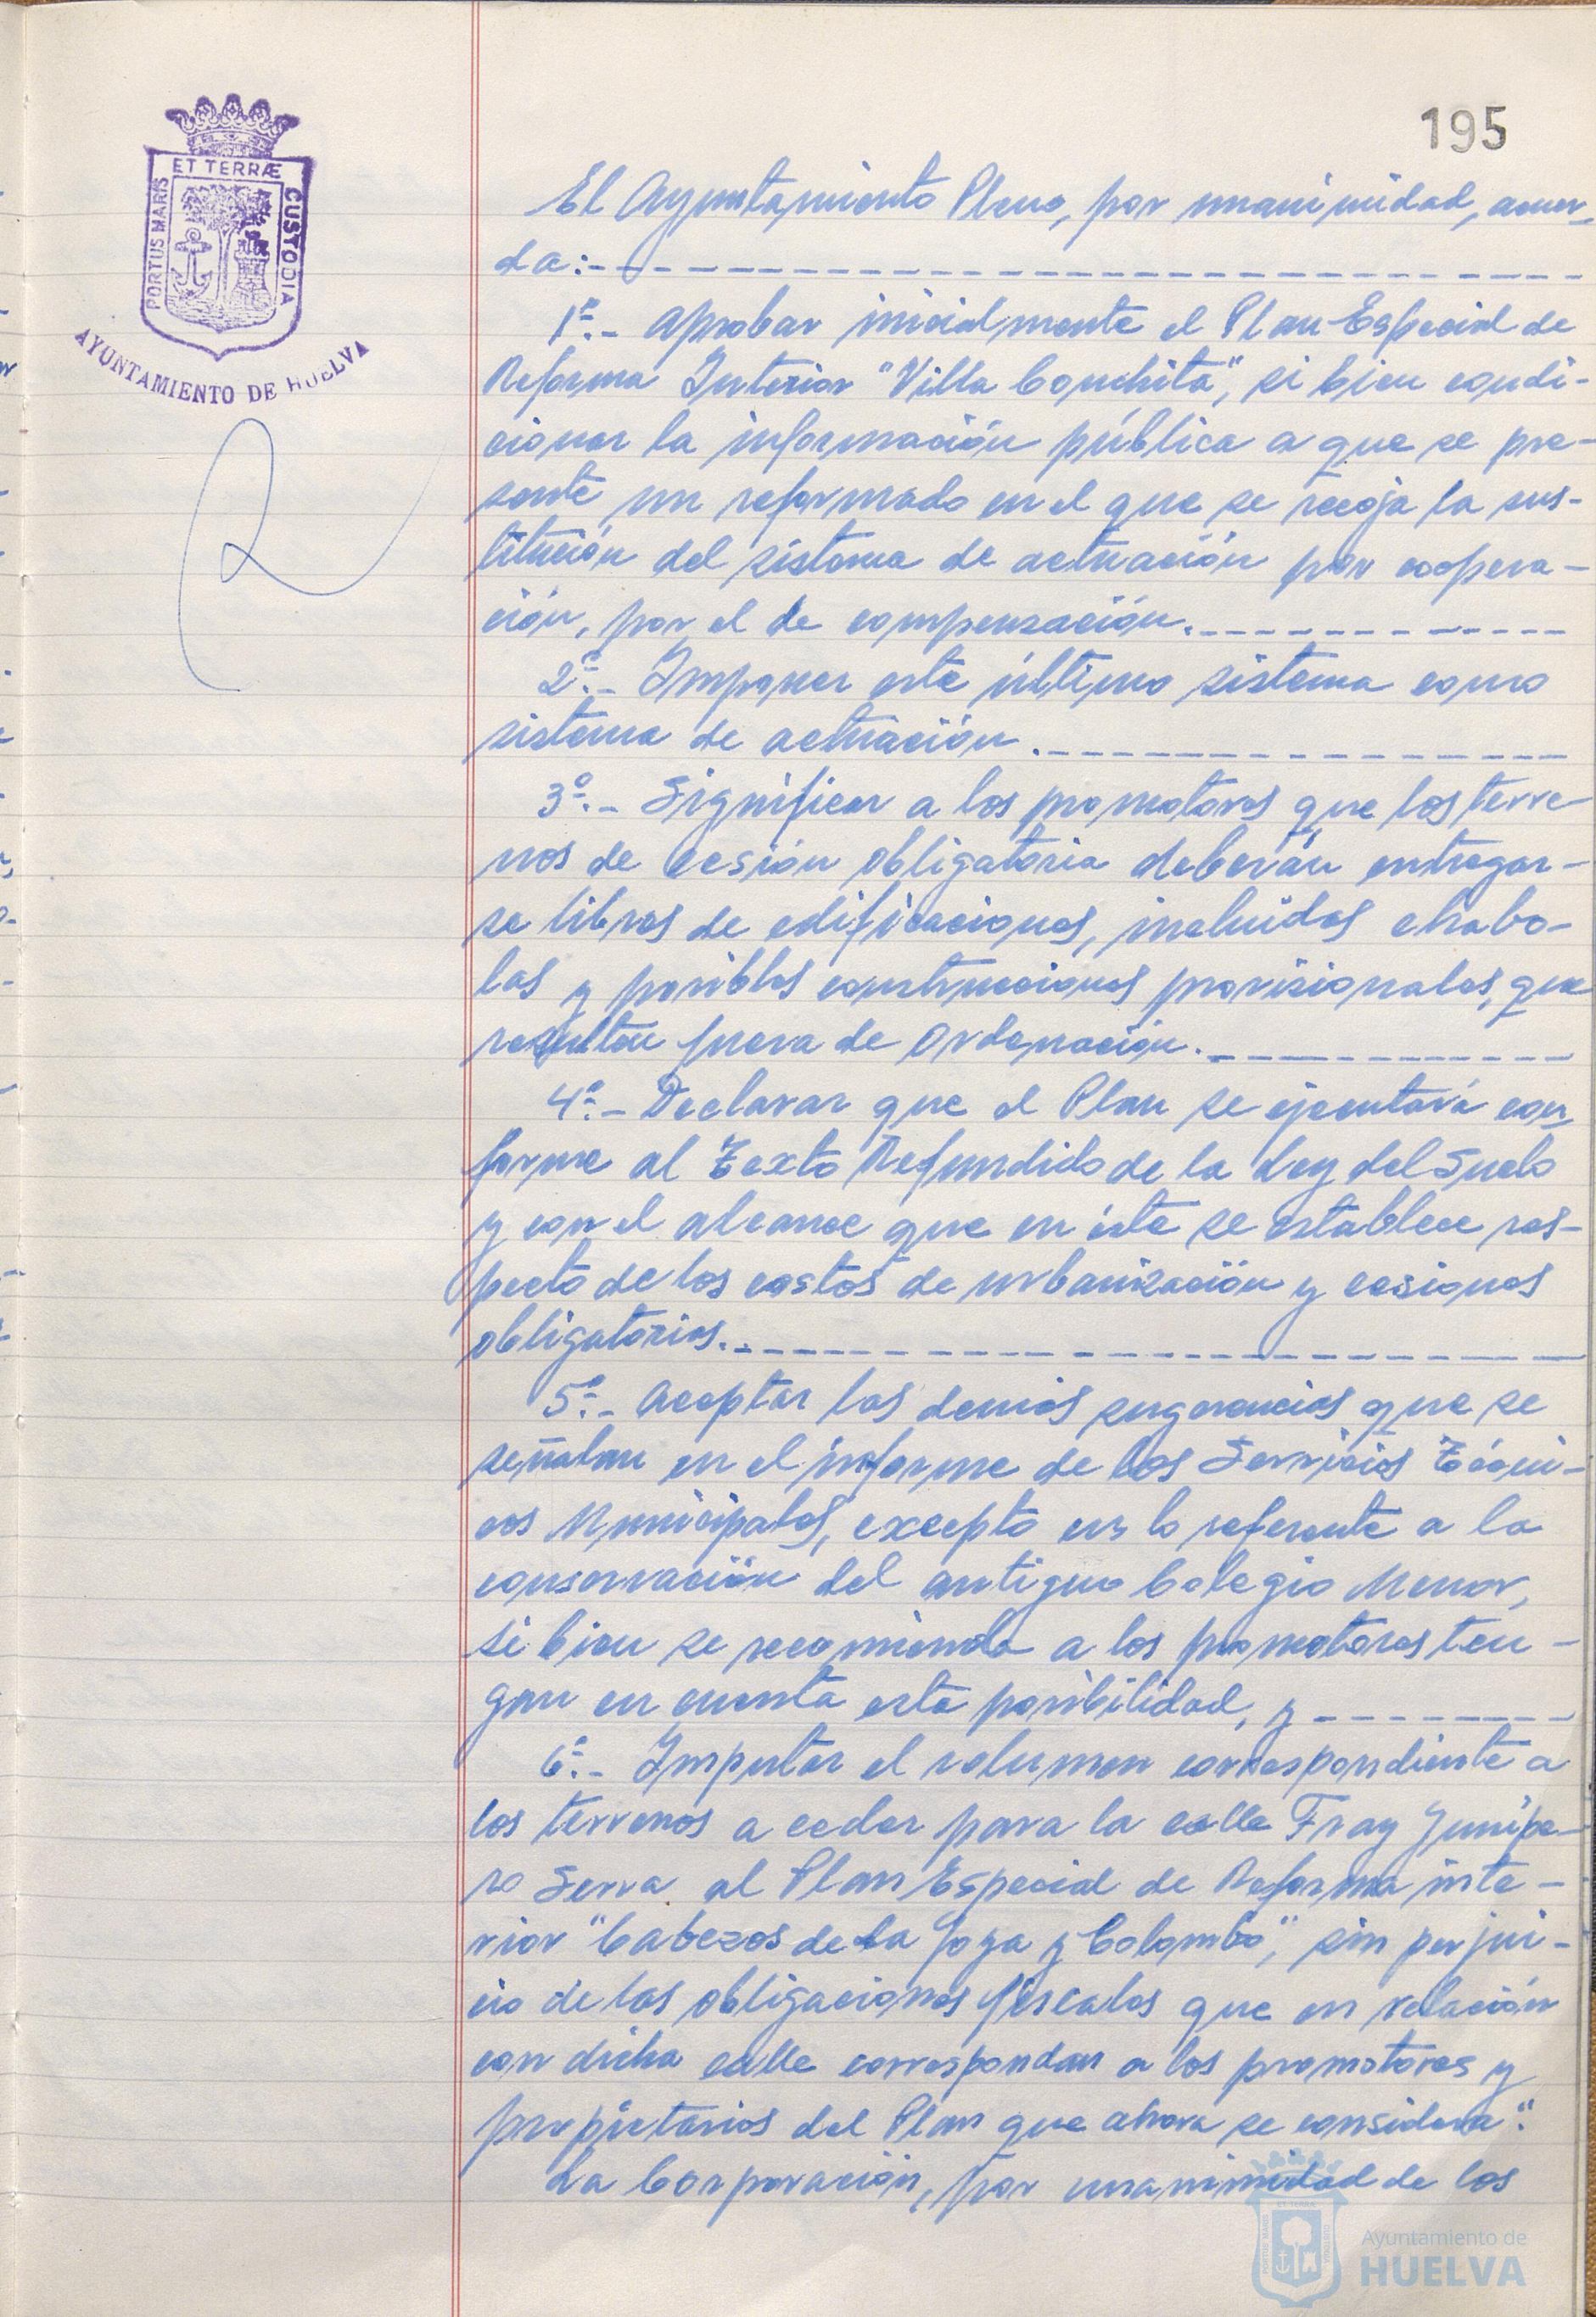 195
ET TERRÆ
PORTUS MARIS
CUSTODIA
AYUNTAMIENTO DE HUELVA
El Ayuntamiento Pleno, por unanimidad, acuer-
da:-
1º.- Aprobar inicialmente el Plan Especial de
Reforma Interior "Villa Conchita", si bien condi-
cionar la información pública a que se pre-
sente un reformado en el que se recoja la sus-
titución del sistema de actuación por coopera-
ción, por el de compensación.-
2º.- Imponer este último sistema como
sistema de actuación.-
3º.- Significar a los promotores que los terre
nos de cesión obligatoria deberán entregar-
se libres de edificaciones, incluidas chabo-
las y posibles construcciones provisionales, que
resulten fuera de Ordenación.-
4º.- Declarar que el Plan se ejecutará con-
forme al Texto Refundido de la Ley del Suelo
y con el alcance que en éste se establece res-
pecto de los costos de urbanización y cesiones
obligatorias.-
5º.- Aceptar las demás sugerencias que se
señalan en el informe de los Servicios Técni-
cos Municipales, excepto en lo referente a la
conservación del antiguo Colegio Menor,
si bien se recomienda a los promotores ten-
gan en cuenta esta posibilidad, y-
6º.- Imputar el volumen correspondiente a
los terrenos a ceder para la calle Fray Junípe-
ro Serra al Plan Especial de Reforma inte-
rior "Cabezos de la Joya y Colombo", sin perjui-
cio de las obligaciones fiscales que en relación
con dicha calle correspondan a los promotores y
propietarios del Plan que ahora se considera".
La Corporación, por unanimidad de los
Ayuntamiento de
HUELVA